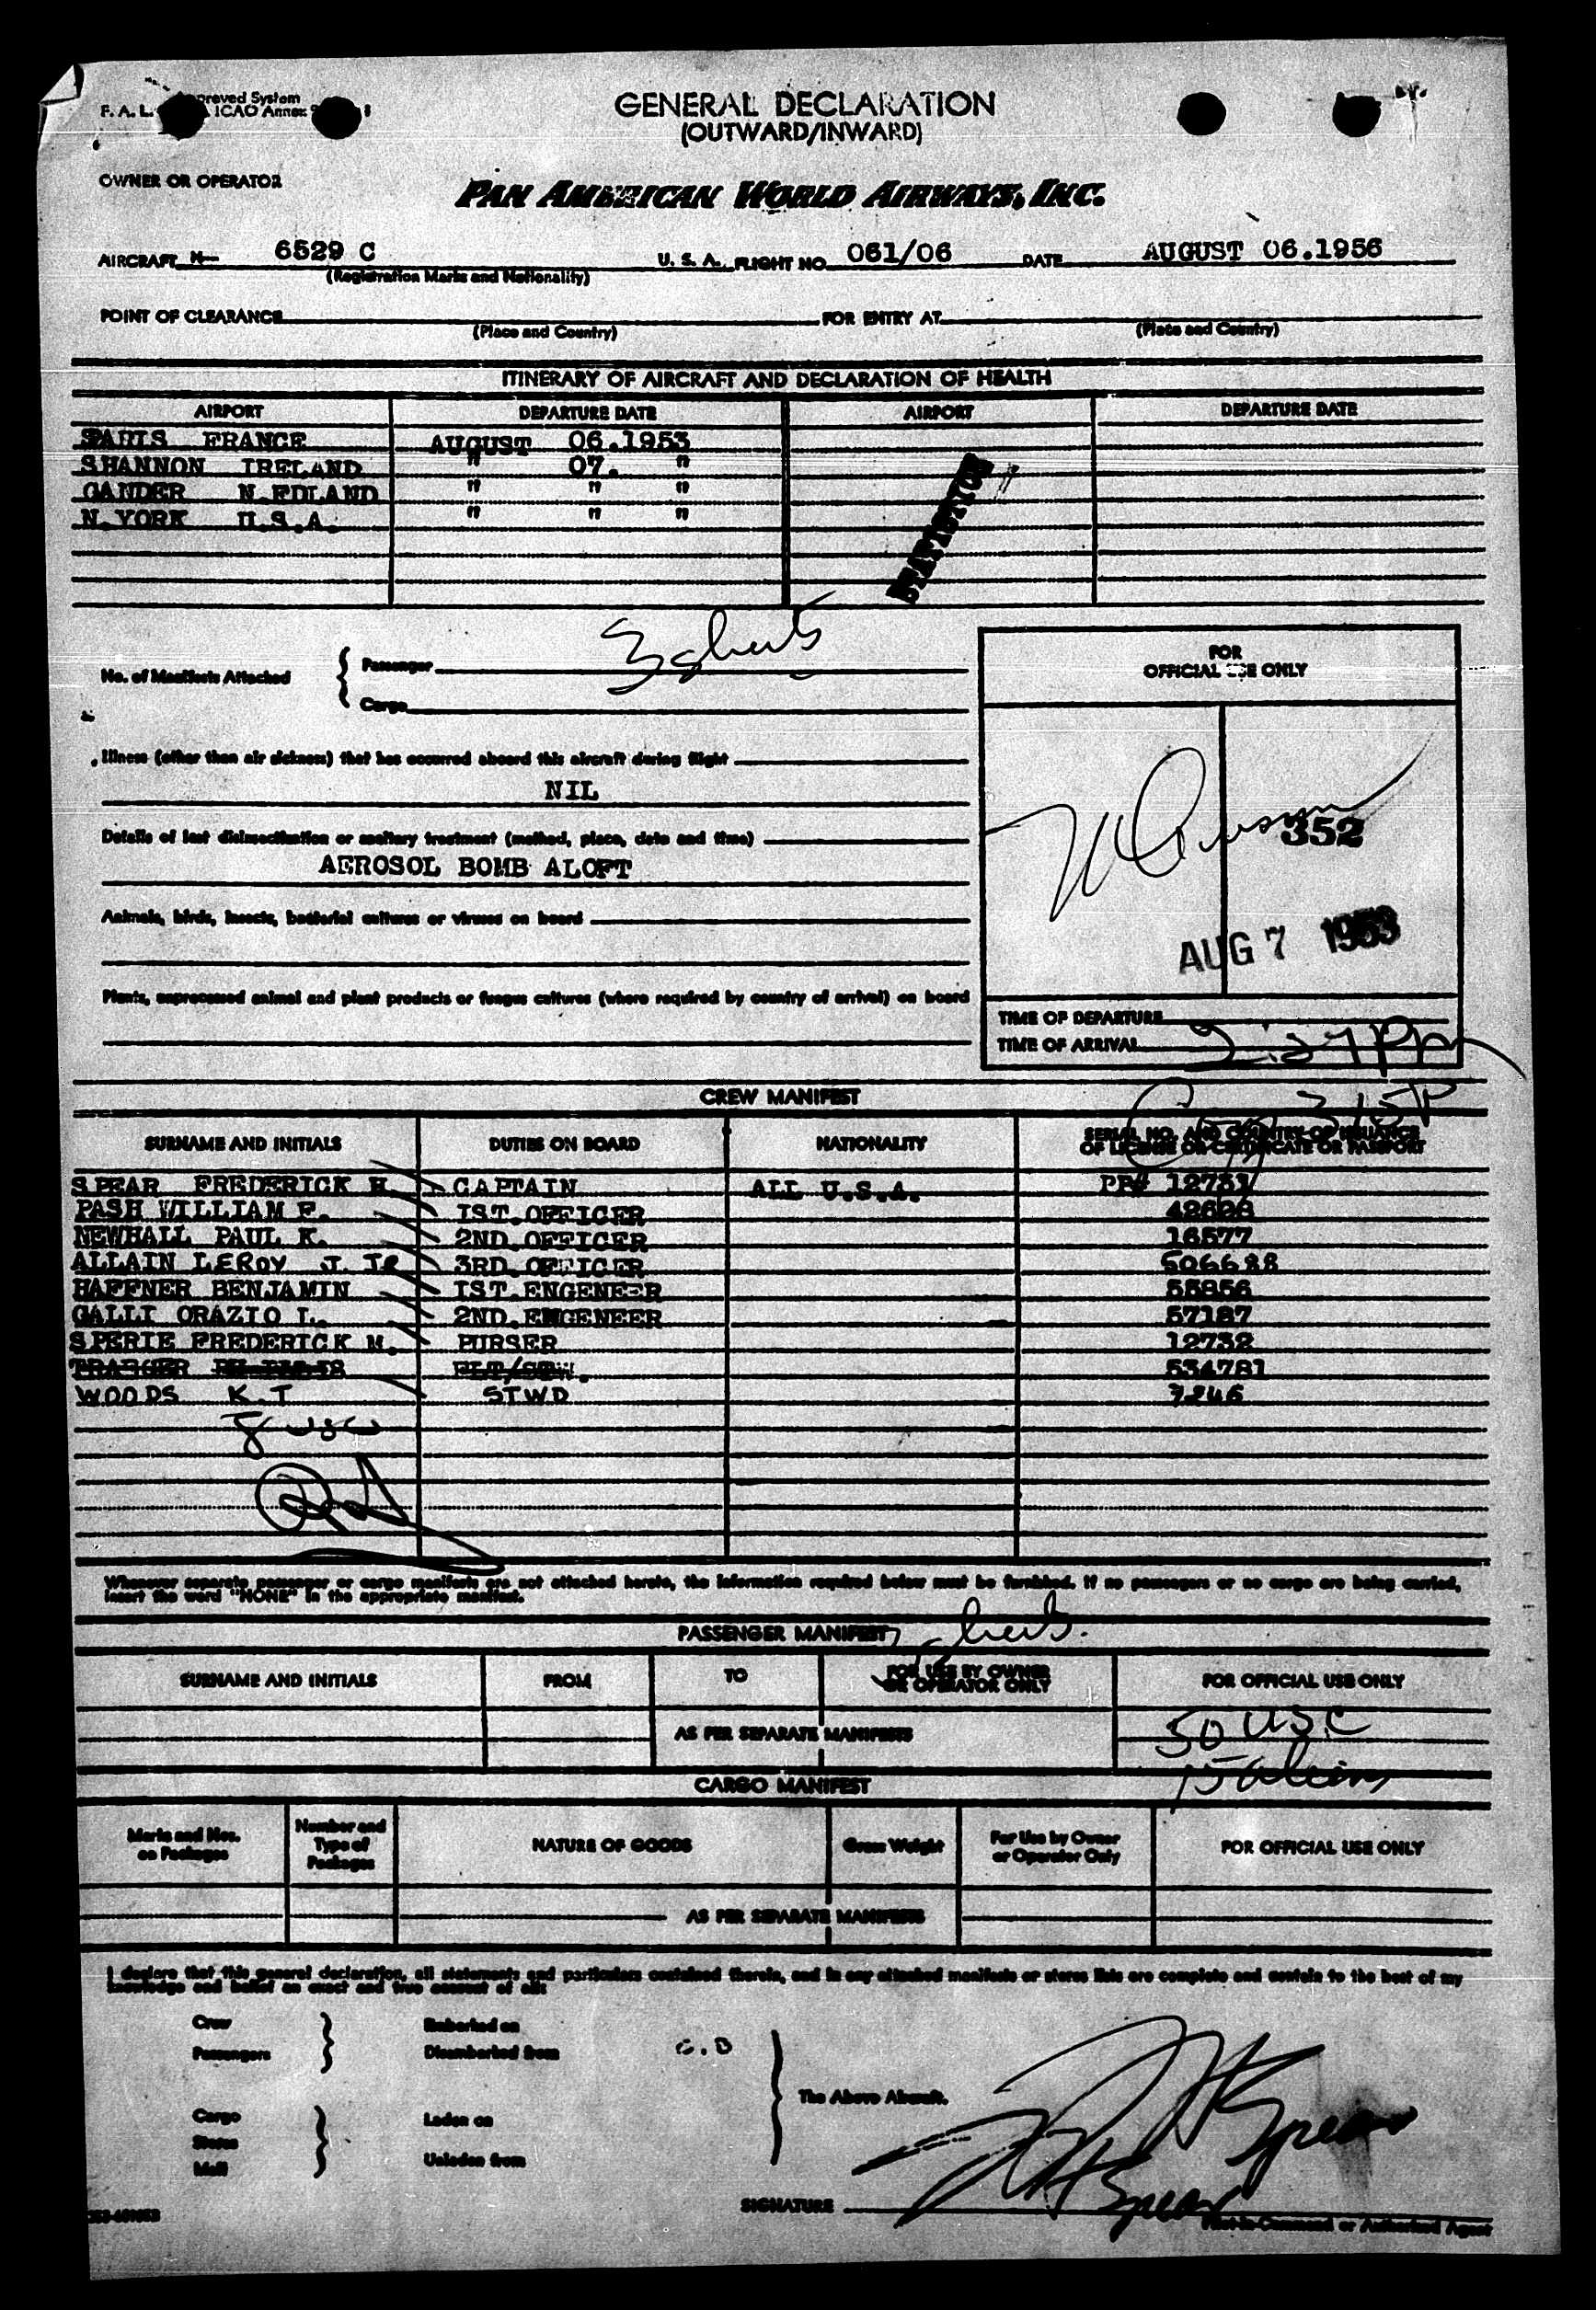 GENERAL DECLARATION
(OUTWARD/INWARD)
F. A. L. ICAO Annex
OWNER OR OPERATOR
PAN AMERICAN WORLD AIRWAYS, INC.
AIRCRAFT N- 6529 C U. S. A. FLIGHT NO. 061/06 DATE AUGUST 06.1956
(Registration Marks and Nationality)
POINT OF CLEARANCE FOR ENTRY AT
(Place and Country) (Place and Country)
ITINERARY OF AIRCRAFT AND DECLARATION OF HEALTH
AIRPORT DEPARTURE DATE AIRPORT DEPARTURE DATE
FRANCE AUGUST 06.1953
SHANNON IRELAND " 07. "
GANDER N.FDLAND " " "
N.YORK U.S.A. " " "
No. of Manifests Attached
Passenger 3 sheets
Cargo
FOR
OFFICIAL USE ONLY
Illness (other than air sickness) that has occurred aboard this aircraft during flight
NIL
Details of last disinsectization or sanitary treatment (method, place, date and time)
AEROSOL BOMB ALOFT
352
Animals, birds, insects, bacterial cultures or viruses on board
AUG 7 1953
Plants, unprocessed animal and plant products or fungus cultures (where required by country of arrival) on board
TIME OF DEPARTURE
TIME OF ARRIVAL 2:27 Pm
315P
CREW MANIFEST
SURNAME AND INITIALS DUTIES ON BOARD NATIONALITY SERIAL NO. AND COUNTRY OF ISSUANCE
OF LICENSE OR CERTIFICATE OR PASSPORT
SPEAR FREDERICK H. CAPTAIN ALL U.S.A. PP# 12731
PASH WILLIAM F. IST.OFFICER 42628
NEWHALL PAUL K. 2ND.OFFICER 16577
ALLAIN LEROY J. JR 3RD.OFFICER 506688
HAFFNER BENJAMIN IST.ENGENEER 55856
GALLI ORAZIO L. 2ND.ENGENEER 57187
SPERIE FREDERICK M. PURSER 12732
FLT/STW. 534781
WOODS K.T STWD 7246
8 usc
Whenever separate passenger or cargo manifests are not attached hereto, the information required below must be furnished. If no passengers or no cargo are being carried,
insert the word "NONE" in the appropriate manifest.
PASSENGER MANIFEST 3 sheets.
SURNAME AND INITIALS FROM TO FOR USE BY OWNER
OR OPERATOR ONLY FOR OFFICIAL USE ONLY
AS PER SEPARATE MANIFESTS
50 USC
15 aliens
CARGO MANIFEST
Marks and Nos.
on Packages Number and
Type of
Packages NATURE OF GOODS Gross Weight For Use by Owner
or Operator Only FOR OFFICIAL USE ONLY
AS PER SEPARATE MANIFESTS
I declare that this general declaration, all statements and particulars contained therein, and in any attached manifests or stores lists are complete and contain to the best of my
knowledge and belief an exact and true account of all:
Crew Embarked on
Passengers Disembarked from
The Above Aircraft.
Cargo Laden on
Stores
Mail Unladen from
SIGNATURE F H Spear
Pilot-in-Command or Authorized Agent